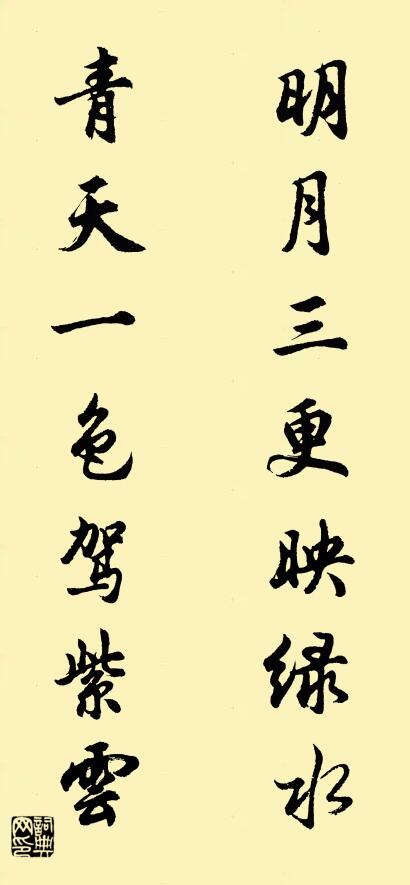 明月三更映绿水
青天一色驾紫雲
詞典网印